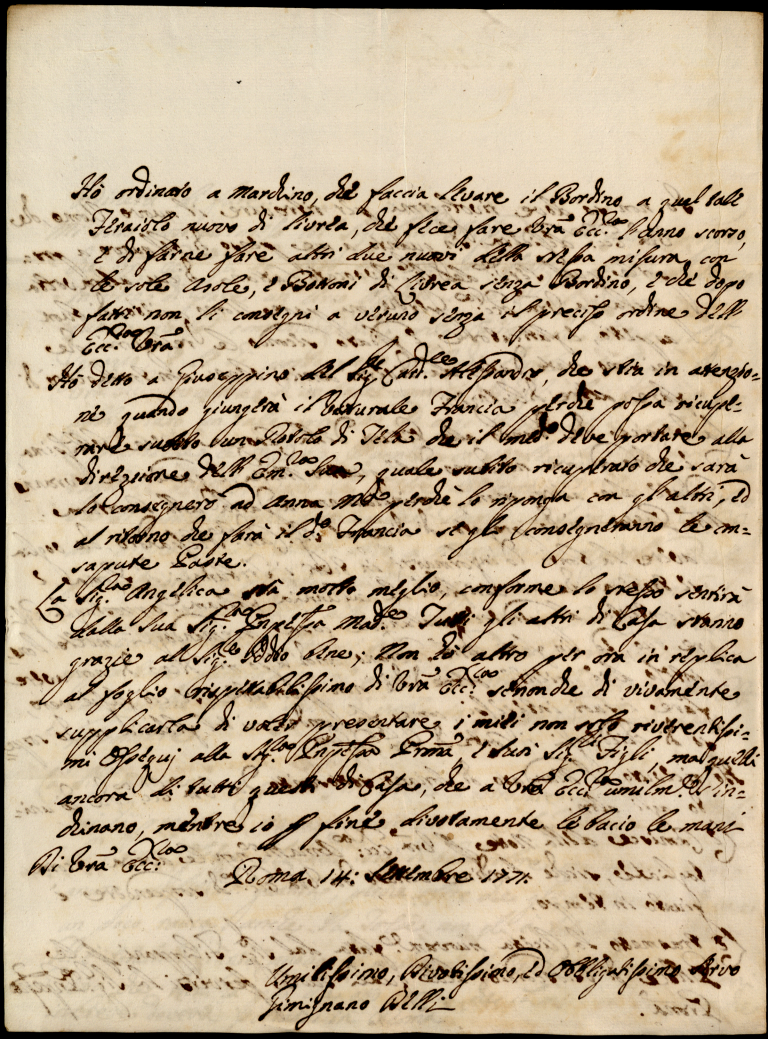 Hò ordinato a Marchino, che faccia levare il Bordino a quel tale
Feraiolo nuovo di livrea, che fece fare Vrã Ecc.za l'anno scorso,
e di farne fare altri due nuovi della stessa misura con
le sole Asole, e Bottoni di Livrea senza Bordino, e che dopo
fatti non li consegni a veruno senza il preciso ordine dell'
Ecc.za Vrã.
Hò detto a Giuseppino del Sig.re Card.le Alessandro, che stia in attenzio=
ne quando giungerà il Francia perche possa ricupe=
rare subito un Rotolo di Tela che il med.mo deve portare alla
direzione dell' Em.za Sua, quale subito ricuperato che sarà
lo consegnerò ad Anna M.a perche lo riponga con gl'altri, ed
al ritorno che farà il d.o Francia se gli consegneranno le con=
sapute Paste.
La Sig.ra Angelica stà molto meglio, conforme lo stesso sentirà
dalla Sua Sig.ra Pnpessa Mad.e Tutti gli altri di Casa stanno
grazie al Sig.re Iddio bene; Non hò altro per ora in replica
al foglio rispettabilissimo di Vrã Ecc.za senonche di vivamente
supplicarla di voler presentare i miei non solo riverentissi=
mi Ossequj alla Sig.ra Pnpessa Prona, e Suoi Sig.ri Figli, ma quelli
ancora di tutti questi di Casa, che a Vrã Ecc.za umilm.te s'in=
chinano, mentre io p fine divotamente le bacio le mani
Di Vrã Ecc.za
Roma 14: Settembre 1771.
Umilissimo, Divotissimo, ed Obbligatissimo Servo
Gimignano Belli